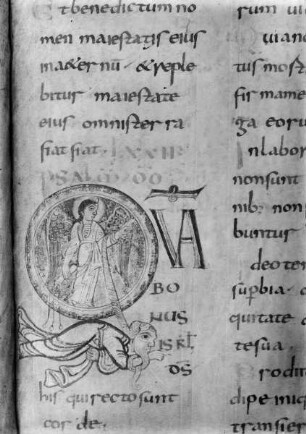 & benedictum no
men maiestatis eius
in aeternū · & reple
bitur maiestate
eius omnis terra
fiat fiat. LXXII
QUA
BO
NUS
ISRL
DS
his qui recto sunt
corde.
rum
tus mort
firmame
ga eoru
In labor
non sunt
nib: non
buntur
deo ten
supbia.
quitate
te sua.
Prodi
transier